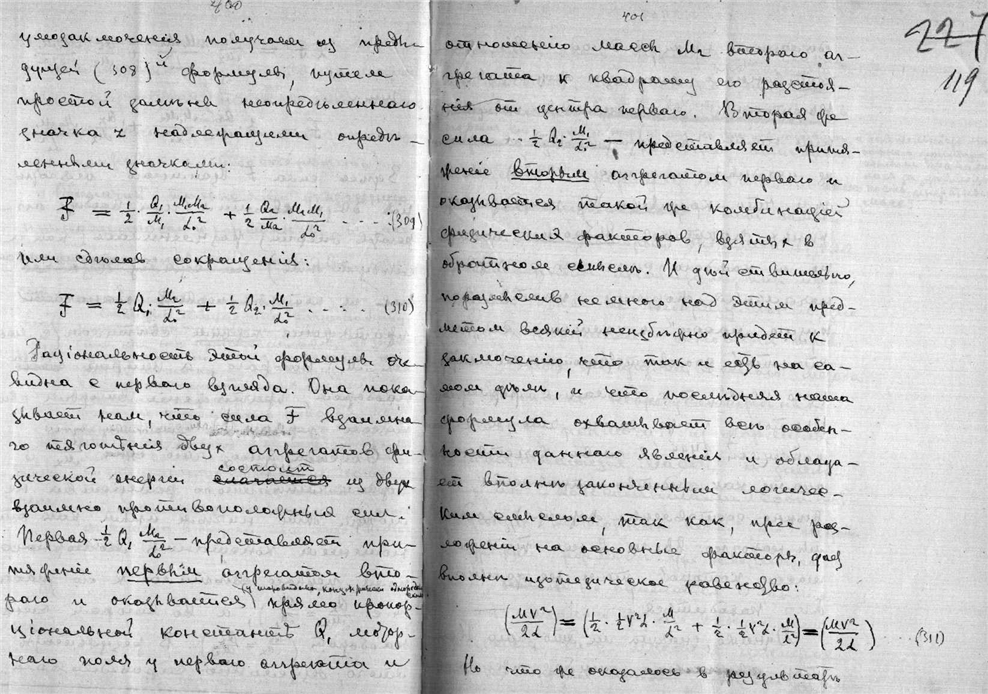 400
умозаключенія получаем из преды-
дущей (308)й формулы, путем
простой замѣны неопредѣленнаго
значка r надлежащими опредѣ-
ленными значками:
F = ½ Q₁/M₁ · M₁M₂/L₀² + ½ Q₂/M₂ · M₂M₁/L₀² . . . . . (309)
или сдѣлав сокращенія:
F = ½ Q₁ · M₂/L₀² + ½ Q₂ · M₁/L₀² . . . . . (310)
Раціональность этой формулы оче-
видна с перваго взгляда. Она пока-
зывает нам, что сила F взаимна-
го тяготѣнія двух аггрегатов фи-
зической энергіи состоит из двух
взаимно противоположных сил:
Первая ½ Q₁ M₂/L₀² — представляет при-
тяженіе первым аггрегатом вто-
раго и оказывается прямо пропор-
ціональной константѣ Q₁ мотор-
наго поля у перваго аггрегата и
401
227
119
отношенію массы M₂ второго аг-
грегата к квадрату его разстоя-
нія от центра перваго. Вторая же
сила . . ½ Q₂ · M₁/L₀² — представляет притя-
женіе вторым аггрегатом перваго и
оказывается такой же комбинаціей
физических факторов, взятых в
обратном смыслѣ. И дѣйствительно,
поразмыслив немного над этим пред-
метом всякій неизбѣжно придет к
заключенію, что так и есть на са-
мом дѣлѣ, и что послѣдняя наша
формула охватывает всѣ особен-
ности даннаго явленія и облада-
ет вполнѣ законченным логичес-
ким смыслом, так как, при раз-
ложеніи на основные факторы, дает
вполнѣ тождественное равенство:
(MV²/2L) = (½ · ½V²L · M/L² + ½ · ½V²L · M/L²) = (MV²/2L) . . . (311)
Но что же оказалось в результатѣ